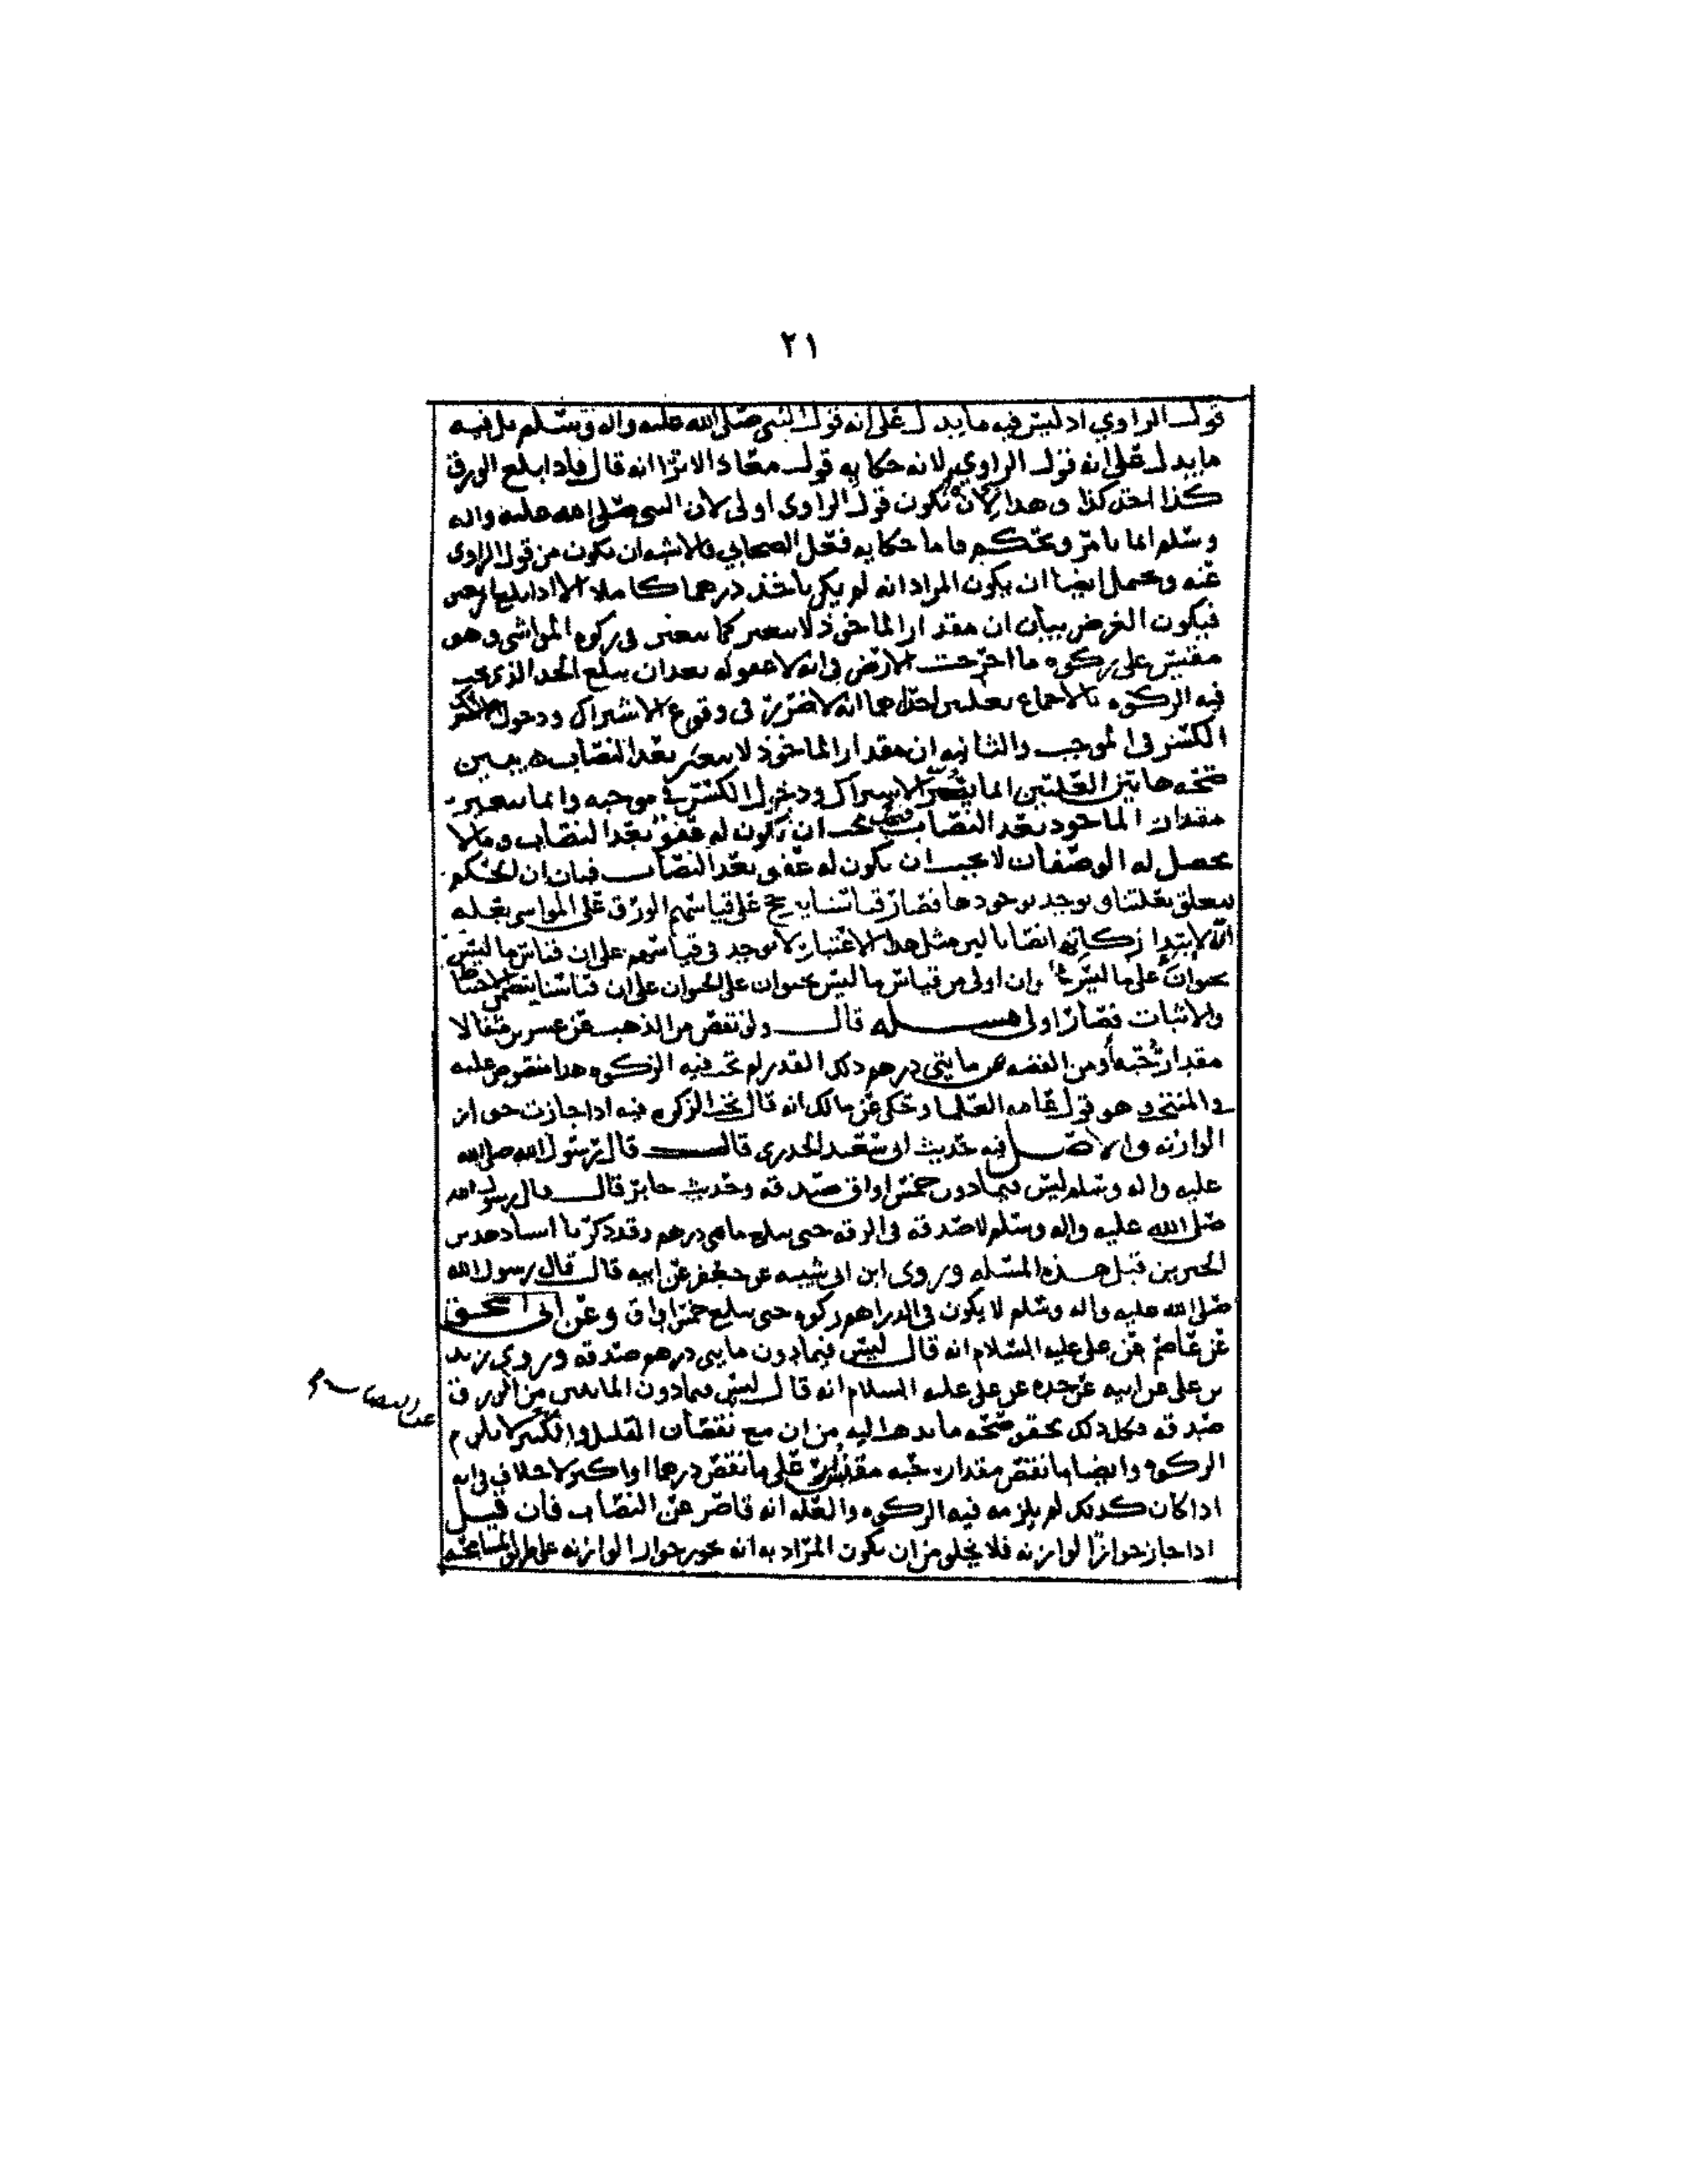 ٢١
قول الراوي اذ ليس فيه ما يدل على انه قول النبي صلى الله عليه واله وسلم بل فيه
ما يدل على انه قول الراوي لانه حكايه قول معاذ الا ترا انه قال فاذا بلغ الورق
كذا اخذ كذا وهذا لأن تكون قول الراوي اولى لان النبي صلى الله عليه واله
وسلم انما يامر ويحكم فاما حكايه فعل الصحابي فالاشبه ان يكون من قول الراوي
عنه ويحتمل ايضا ان يكون المراد انه لم يكن ياخذ درهما كاملا الا اذا بلغ اربعين
فيكون الغرض بيان ان مقدار الماخوذ لا يتغير كما يتغير في زكوه المواشي وهو
مقيس على زكوه ما اخرجت الارض في انه لا عفو له بعد ان يبلغ الحد الذي يجب
فيه الزكوه بالاجماع بعلتين احداهما انه لا ضرر في وقوع الاشتراك ودخول
الكسر في الموجب والثانيه ان مقدار الماخوذ لا يتغير بعد النصاب يبين
صحه هاتين العلتين انما يضر الاشتراك ودخول الكسر في موجبه وانما يتغير
مقدار الماخوذ بعد النصاب يجب ان يكون له عفو بعد النصاب وما لا
يحصل له الوصفان لا يجب ان يكون له عفو بعد النصاب فبان ان الحكم
يتعلق بعلتنا ويوجد بوجودها فصار قياسنا يرجح على قياسهم الورق على المواشي بعله
ان لابتدا زكاته نصابا لان مثل هذا الاعتبار لا يوجد في قياسهم على ان قياس ما ليس
بحيوان على ما ليس بحيوان اولى من قياس ما ليس بحيوان على الحيوان على ان قياسنا يتضمن الاحتياط
والاثبات فصار اولى مسئله قال ولو نقص من الذهب عن عشرين مثقالا
مقدار حبه او من الفضه عن مايتي درهم ذلك القدر لم تجب فيه الزكوه هذا منصوص عليه
في المنتخب وهو قول عامه العلما وحكي عن مالك انه قال تجب الزكوه فيه اذا جازت جواز
الوازنه والاصل فيه حديث ابي سعيد الخدري قال قال رسول الله صلى الله
عليه واله وسلم ليس فيما دون خمس اواق صدقه وحديث جابر قال قال رسول الله
صلى الله عليه واله وسلم لا صدقه في الرقه حتى يبلغ مايتي درهم وقد ذكرنا اسناد هذين
الخبرين قبل هذه المسئله وروى ابن ابي شيبه عن جعفر عن ابيه قال قال رسول الله
صلى الله عليه واله وسلم لا يكون في الدراهم زكوه حتى يبلغ خمس اواق وعن ابي اسحق
عن عاصم عن علي عليه السلام انه قال ليس فيما دون مايتي درهم صدقه وروى زيد
بن علي عن ابيه عن جده عن علي عليه السلام انه قال ليس فيما دون المايتين من الورق
صدقه فكل ذلك يحقق صحه ما نذهب اليه من ان مع نقصان القليل والكثير لا يلزم
الزكوه وايضا ما نقص مقدار حبه مقيس على ما نقص درهما او اكثر لا خلاف في انه
اذا كان كذلك لم يلزمه فيه الزكوه والعله انه قاصر عن النصاب فان قيل
اذا جاز جواز الوازنه فلا يخلو من ان يكون المراد به انه يجوز جواز الوازنه على طريق المسامحه